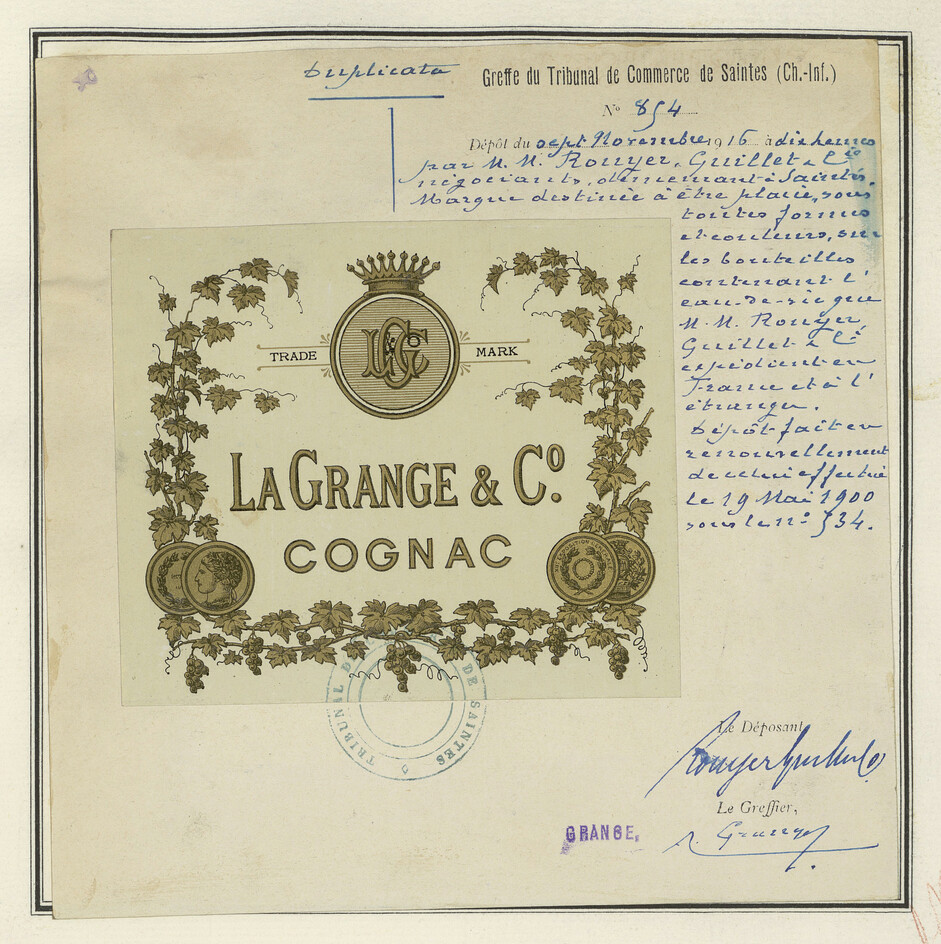 Duplicata
Greffe du Tribunal de Commerce de Saintes (Ch.-Inf.)
N° 854
Dépôt du sept Novembre 1916 à dix heures
par M. M. Rouyer, Guillet & Cie
négociants, demeurant à Saintes.
Marque destinée à être placée, sous
toutes formes
et couleurs, sur
les bouteilles
contenant l'
eau-de-vie que
M. M. Rouyer,
Guillet & Cie
expédient en
France et à l'
étranger.
Dépôt fait en
renouvellement
de celui effectué
le 19 Mai 1900
sous le n° 534.
TRADE MARK
LGC
LA GRANGE & Co.
COGNAC
TRIBUNAL DE SAINTES
Le Déposant,
Rouyer Guillet & Co
Le Greffier,
GRANGE.